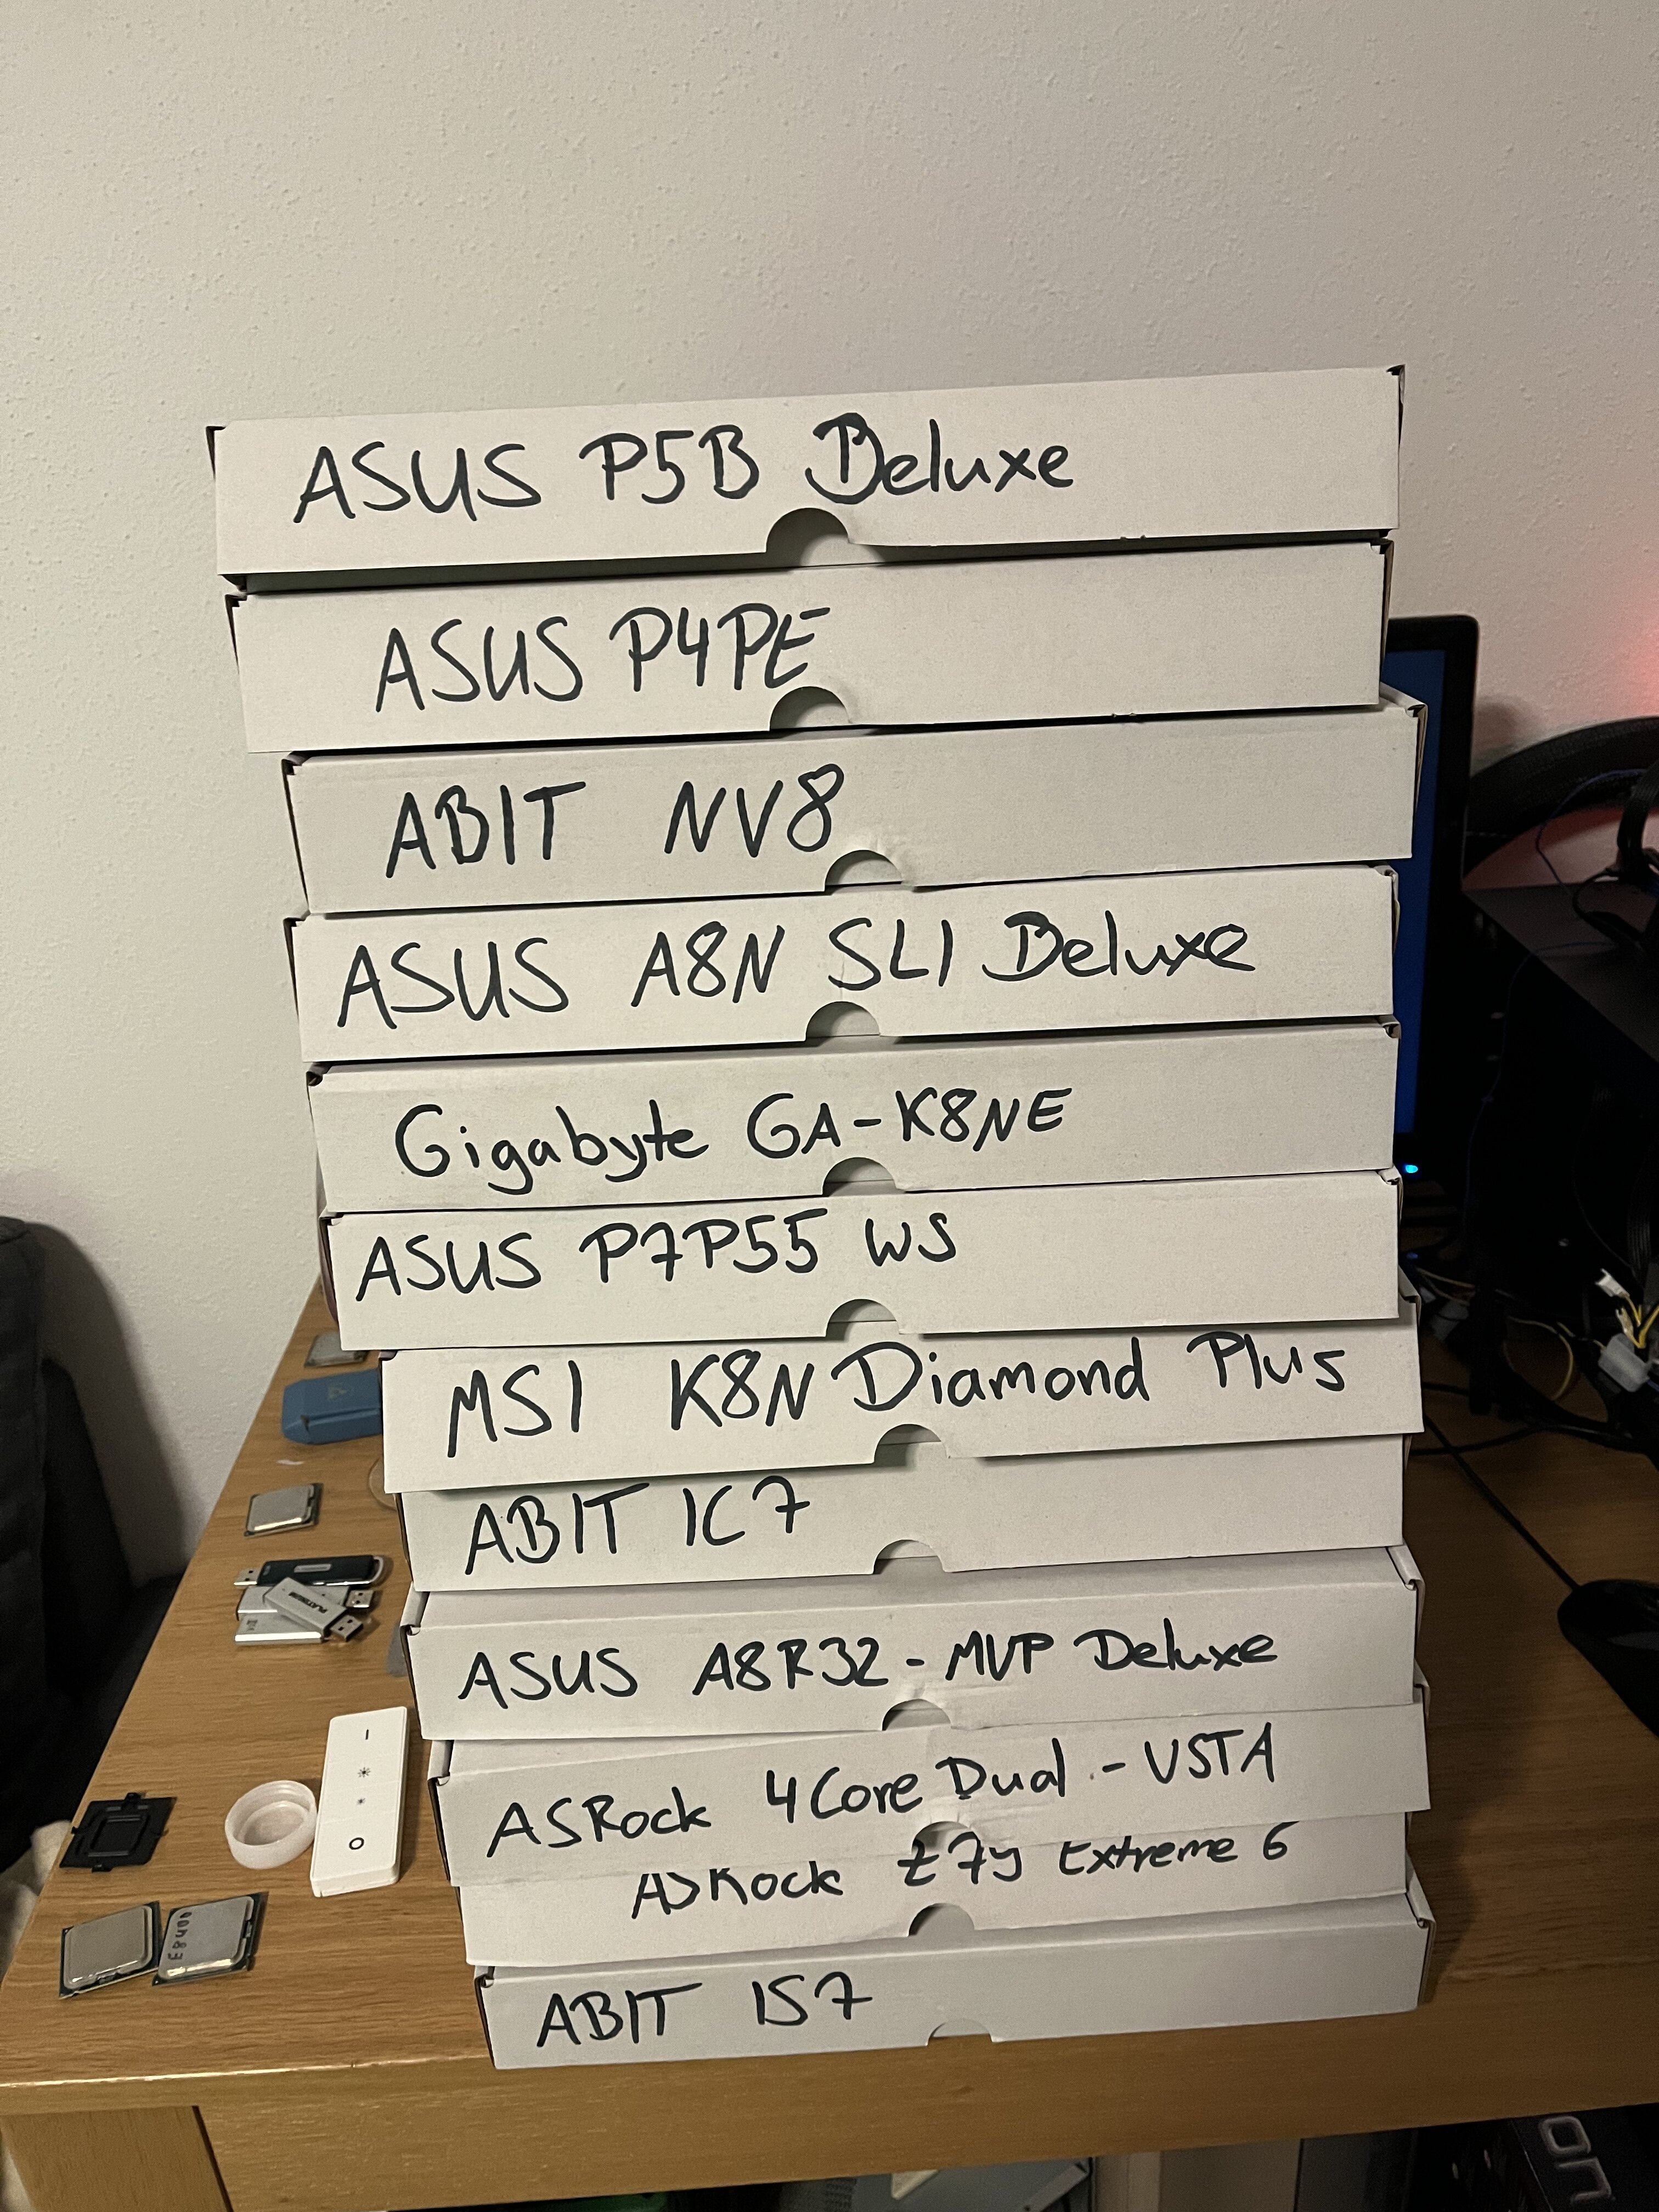 ASUS P5B Deluxe
ASUS P4PE
ABIT NV8
ASUS A8N SLI Deluxe
Gigabyte GA-K8NE
ASUS P7P55 WS
MSI K8N Diamond Plus
ABIT IC7
ASUS A8R32-MVP Deluxe
ASRock 4Core Dual-VSTA
ASRock Extreme 6
ABIT IS7
PLATINUM
E8400